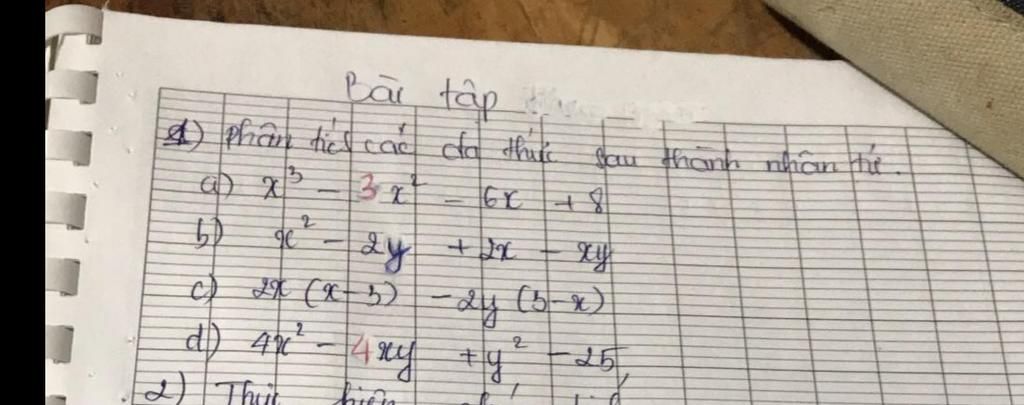 Bài tập
1) phân tích các đa thức sau thành nhân tử.
a) x³ - 3x² - 6x + 8
b) x² - 2y + 2x - xy
c) 2x (x-3) - 2y (3-x)
d) 4x² - 4xy + y² - 25
2)